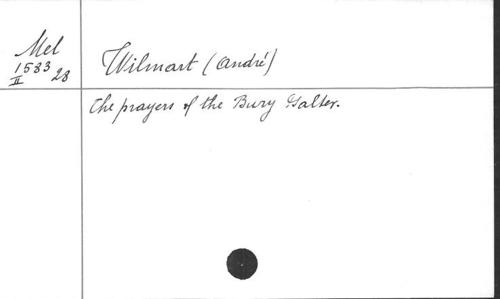 Mel
1583 28
II
Wilmart (André)
The prayers of the Bury Psalter.